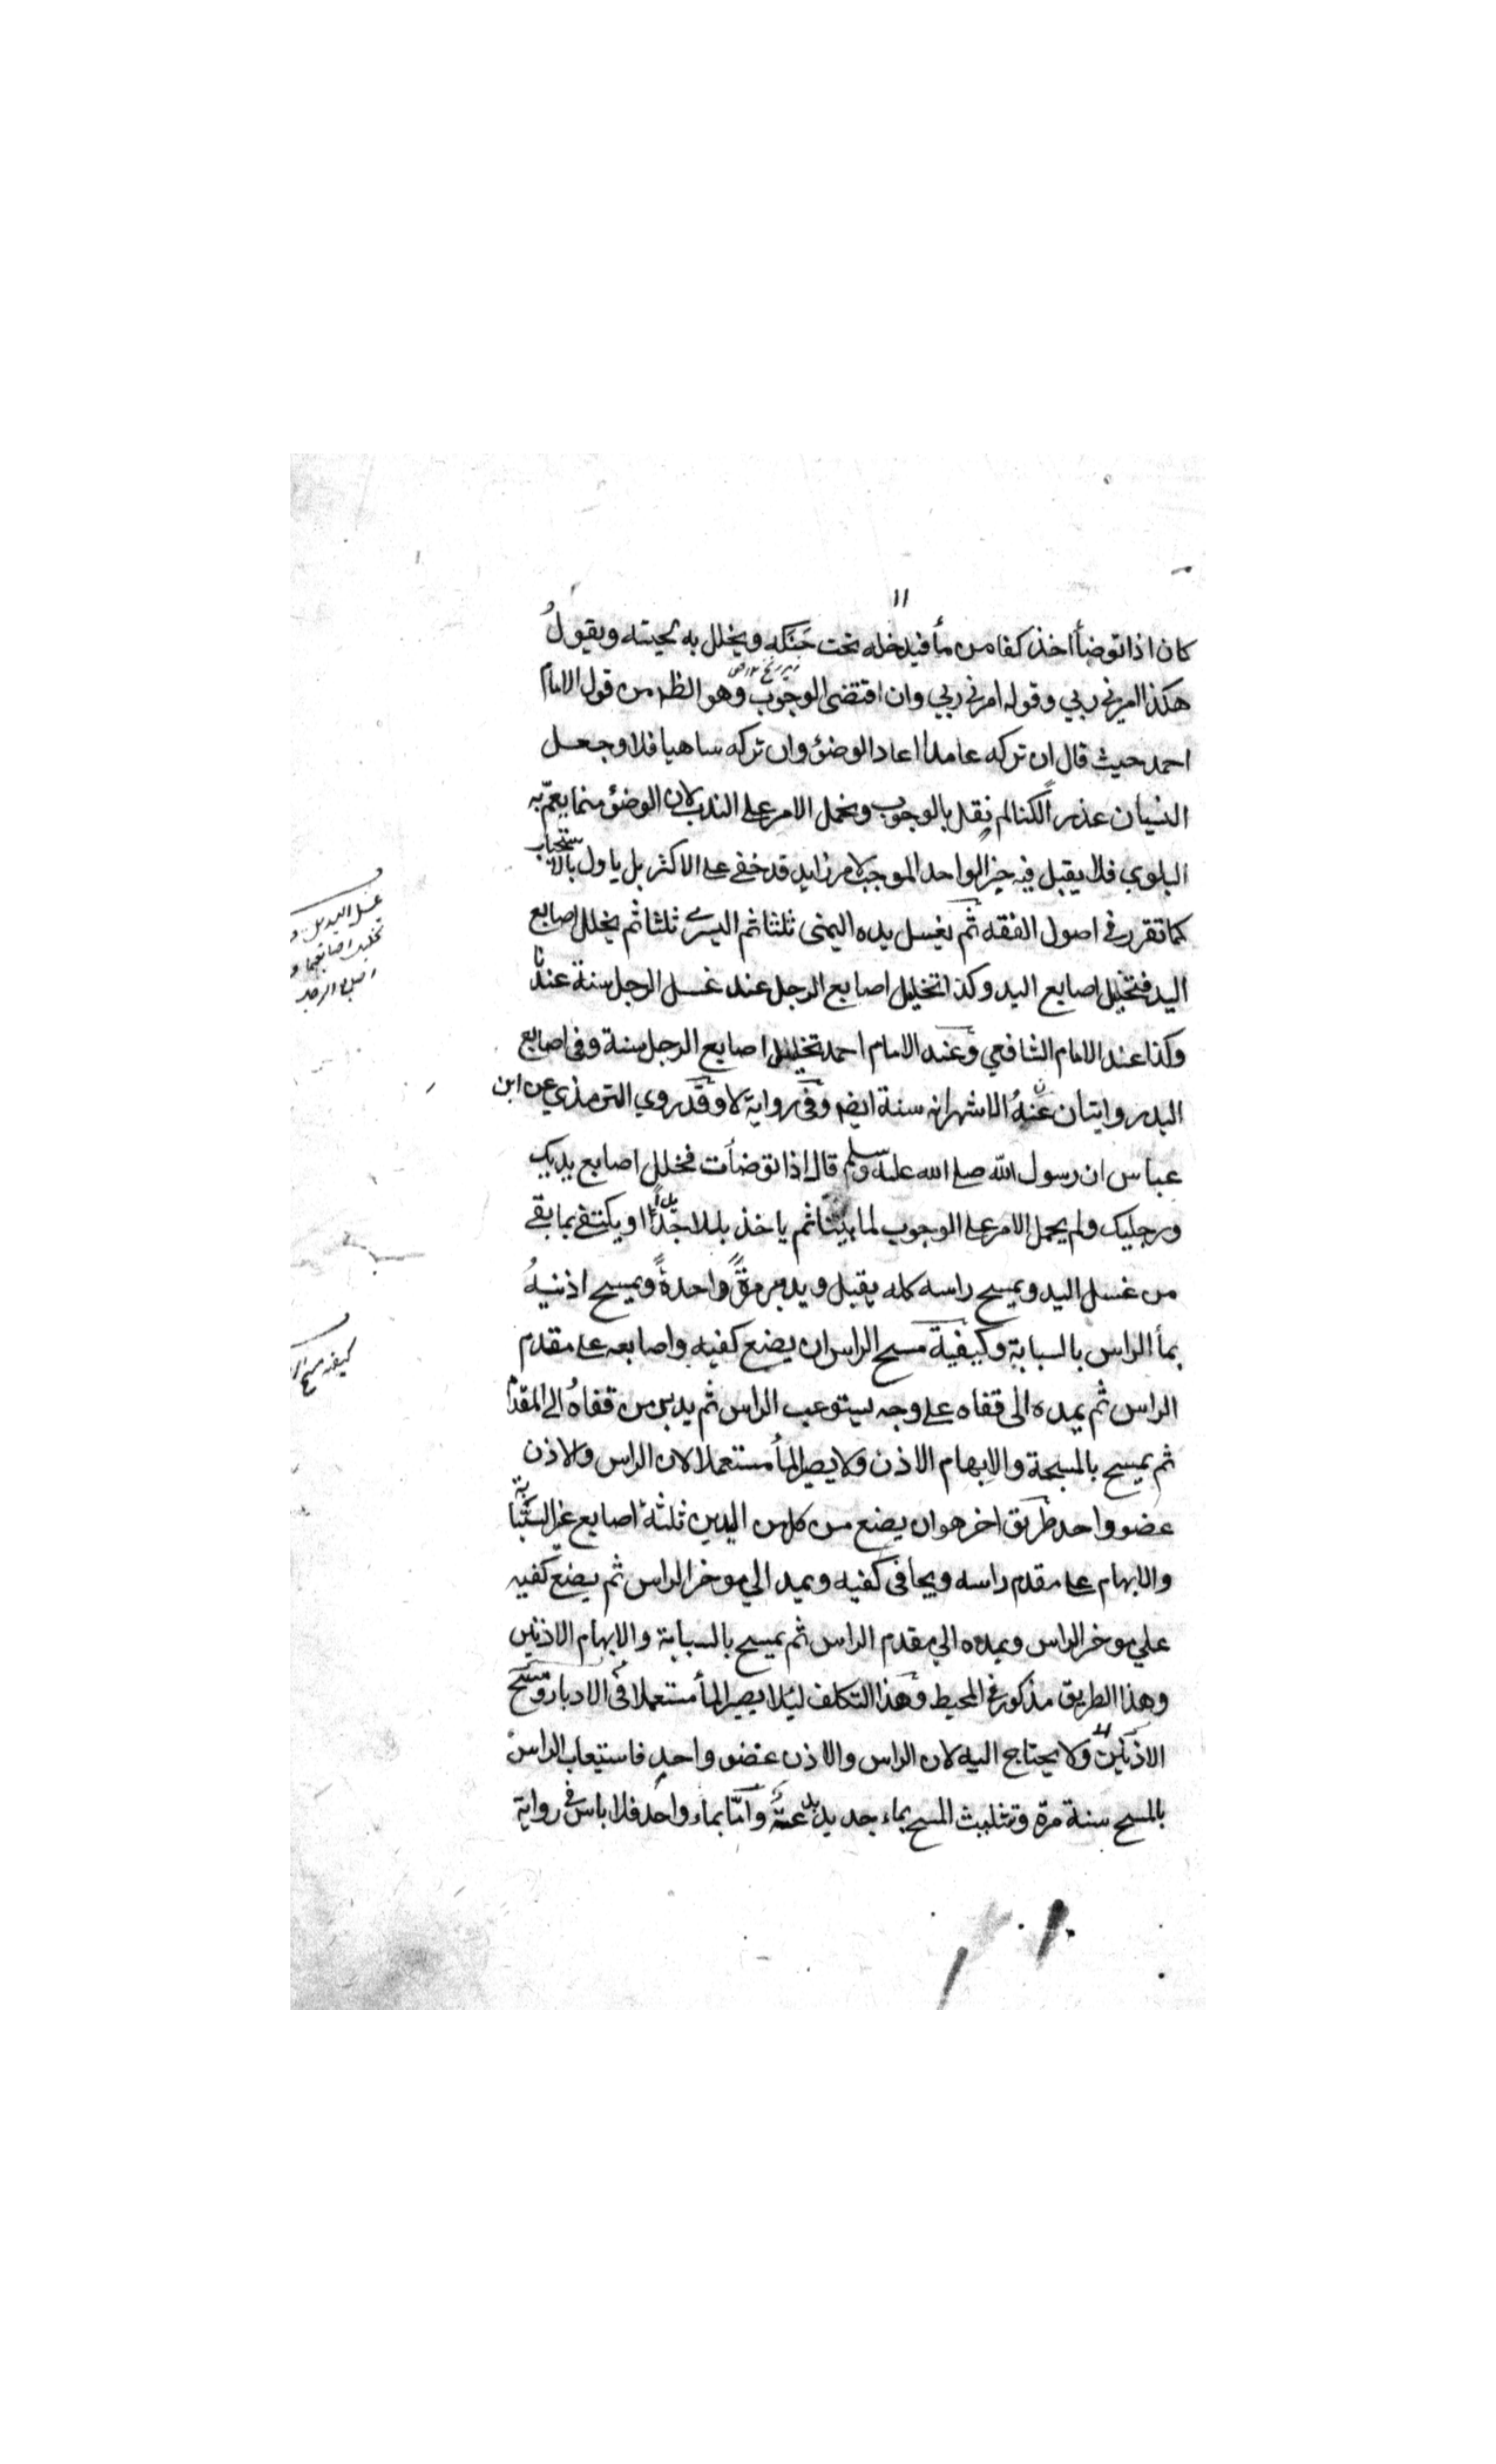 ١١
كان اذا توضأ اخذ كفا من مأ فيدخله تحت حَنَكِه ويخلل به لحيته ويقولُ
هكذا امرني ربي وقوله امرني ربي وان اقتضى الوجوب وهو الظ من قول الامام
احمد حيث قال ان تركه عامدا اعاد الوضؤ وان تركه ساهيا فلا وجعل
النسيان عذرًا لكنا لم نقل بالوجوب ونحمل الامر على الندب لان الوضؤ مما يعمّ به
البلوي فلا يقبل فيه خبر الواحد الموجب لامر زايد قد خفي على الاكثر بل ياول بالاستحباب
كما تقرر في اصول الفقه ثم يغسل يده اليمنى ثلثا ثم اليسرى ثلثا ثم يخلل اصابع
اليد فتخليل اصابع اليد وكذا تخليل اصابع الرجل عند غسل الرجل سنة عندنا
وكذا عند الامام الشافعي وعند الامام احمد تخليل اصابع الرجل سنة وفى اصابع
اليد روايتان عنهُ الاشهر انه سنة ايضا وفى رواية لا وقد روي الترمذي عن ابن
عباس ان رسول الله صلى الله عليه وسلم قال اذا توضأت فخلل اصابع يديك
ورجليك ولم يحمل الامر على الوجوب لما بيّنا ثم ياخذ بللا جديدًا او يكتفي بما بقے
من غسل اليد ويمسح راسه كله يقبل ويدبر مرةً واحدةً ويمسح اذنيهُ
بمأ الراس بالسبابة وكيفية مسح الراس ان يضع كفيه واصابعه على مقدم
الراس ثم يمده الى قفاه على وجه يستوعب الراس ثم يدبر من قفاهُ الى المقدم
ثم يمسح بالمسبحة والابهام الاذن ولا يصير المأ مستعملا لان الراس والاذن
عضو واحد طريق اخر هو ان يضع من كل من اليدين ثلثة اصابع غير السبّابة
والابهام على مقدم راسه ويجافى كفيه ويمد الي موخر الراس ثم يضع كفيه
علي موخر الراس ويمده الي مقدم الراس ثم يمسح بالسبابة والابهام الاذنين
وهذا الطريق مذكور في المحيط وهذا التكلف ليئلا يصير المأ مستعملا في الادبار ومسح
الاذنين ولا يحتاج اليه لان الراس والاذن عضو واحد فاستيعاب الراس
بالمسح سنة مرّة وتثليث المسح بماء جديد بدعة وامّا بماء واحد فلا باس في رواية
غسل اليدين و
تخليل اصابعهما و
اصابع الرجل
كيفية مسح